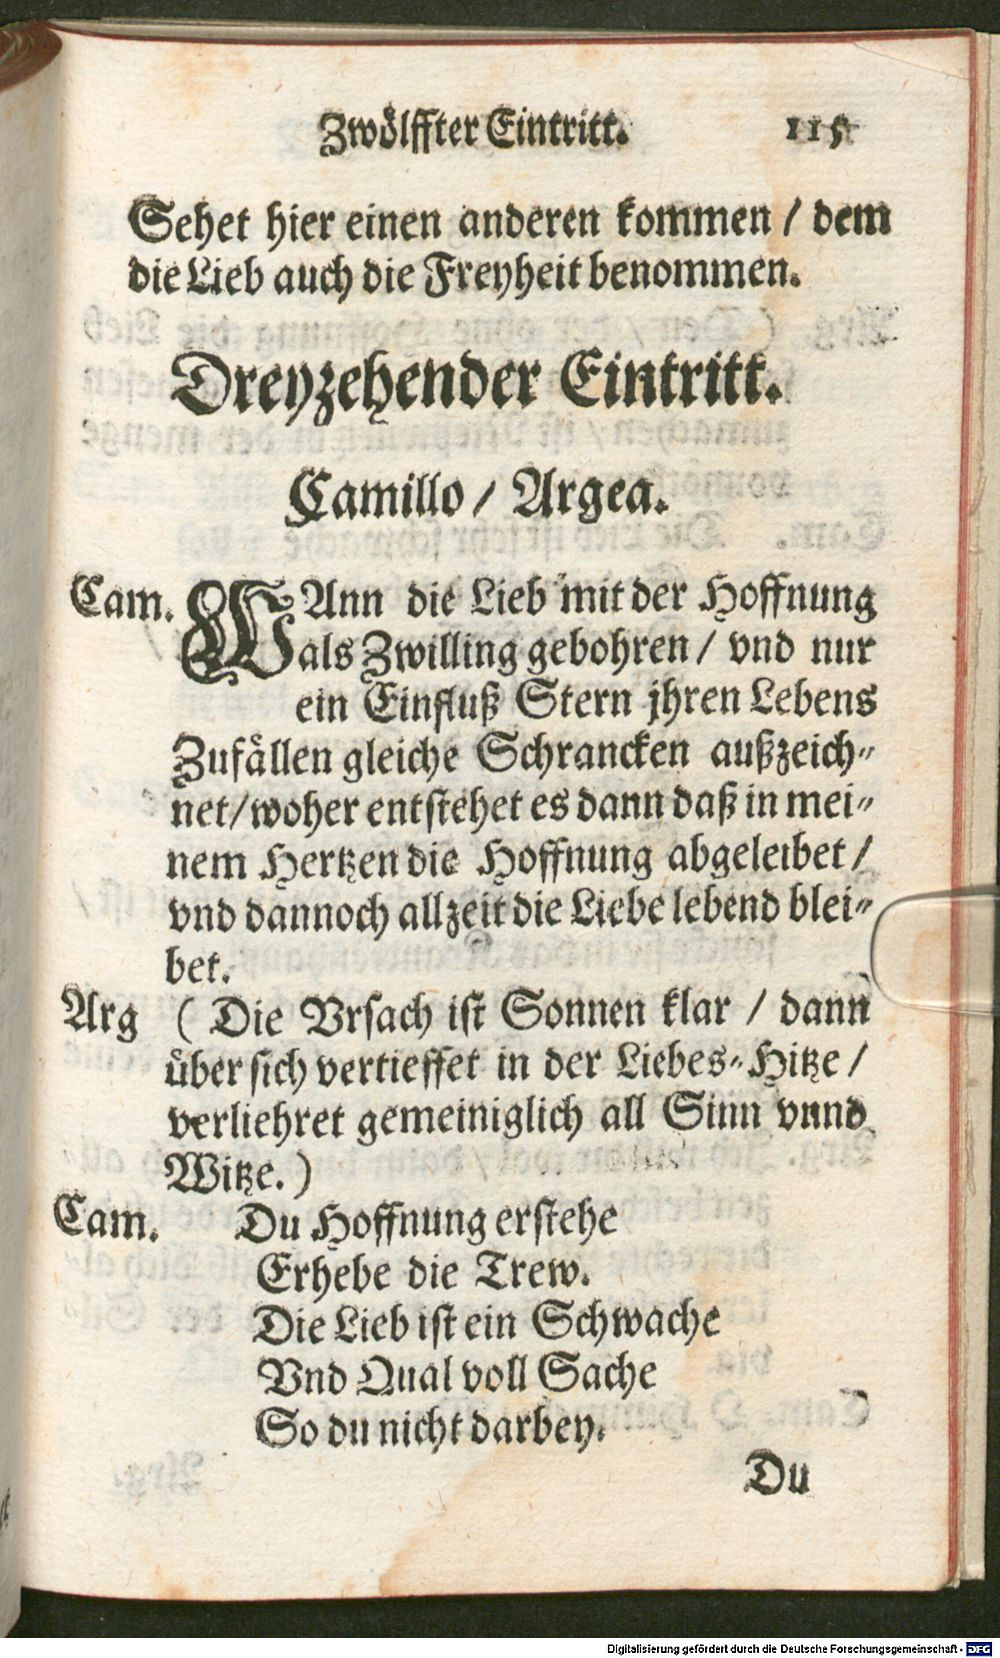 Zwölffter Eintritt. 115
Sehet hier einen anderen kommen / dem
die Lieb auch die Freyheit benommen.
Dreyzehender Eintritt.
Camillo / Argea.
Cam. WAnn die Lieb mit der Hoffnung
als Zwilling gebohren / vnd nur
ein Einfluß Stern jhren Lebens
Zufällen gleiche Schrancken außzeich-
net / woher entstehet es dann daß in mei-
nem Hertzen die Hoffnung abgeleibet /
vnd dannoch allzeit die Liebe lebend blei-
bet.
Arg ( Die Vrsach ist Sonnen klar / dann
über sich vertieffet in der Liebes-Hitze /
verliehret gemeiniglich all Sinn vnnd
Witze. )
Cam. Du Hoffnung erstehe
Erhebe die Trew.
Die Lieb ist ein Schwache
Vnd Qual voll Sache
So du nicht darbey.
Du
Digitalisierung gefördert durch die Deutsche Forschungsgemeinschaft - DFG